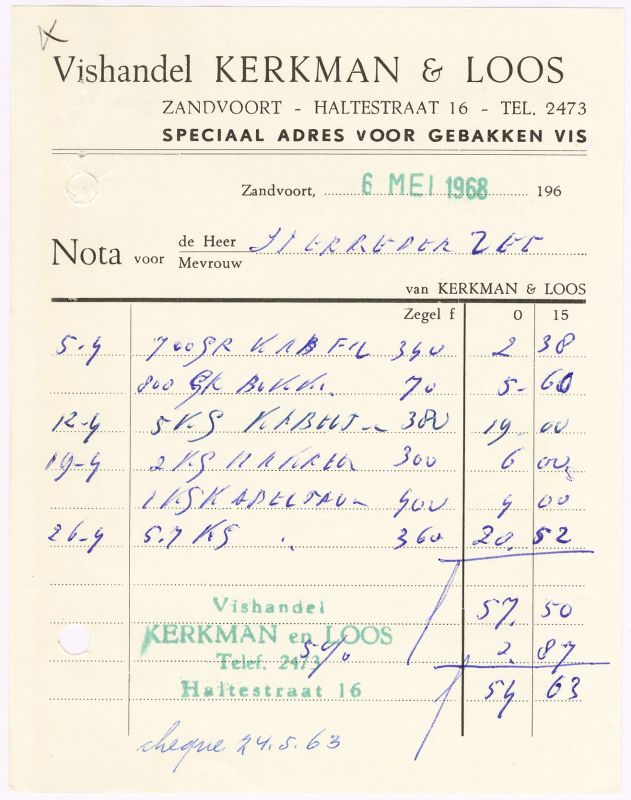 Vishandel KERKMAN & LOOS
ZANDVOORT - HALTESTRAAT 16 - TEL. 2473
SPECIAAL ADRES VOOR GEBAKKEN VIS
Zandvoort, 6 MEI 1968 196
Nota voor de Heer
Mevrouw
van KERKMAN & LOOS
Zegel f 0 15
5-4 700 GR KABFIL 340 2 38
800 GR BOKK. 70 5- 60
12-4 5 KG KABELJ 380 19 00
19-4 2 KG MAKREEL 300 6 00
1 KG KABELJAU 400 4 00
26-4 5.7 KG " 360 20.52
57.50
5% 2.87
54 63
Vishandel
KERKMAN en LOOS
Telef. 2473
Haltestraat 16
cheque 24.5.63